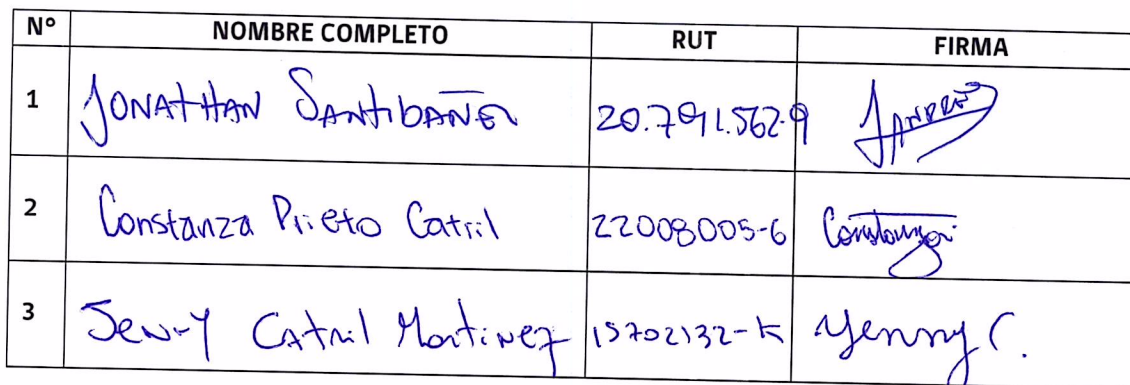 N° NOMBRE COMPLETO RUT FIRMA
1 JONATHAN SANTIBAÑEZ 20.791.562-9
2 Constanza Prieto Catril 22008005-6 Constanza
3 Jenny Catril Martinez 15702132-K Yenny C.